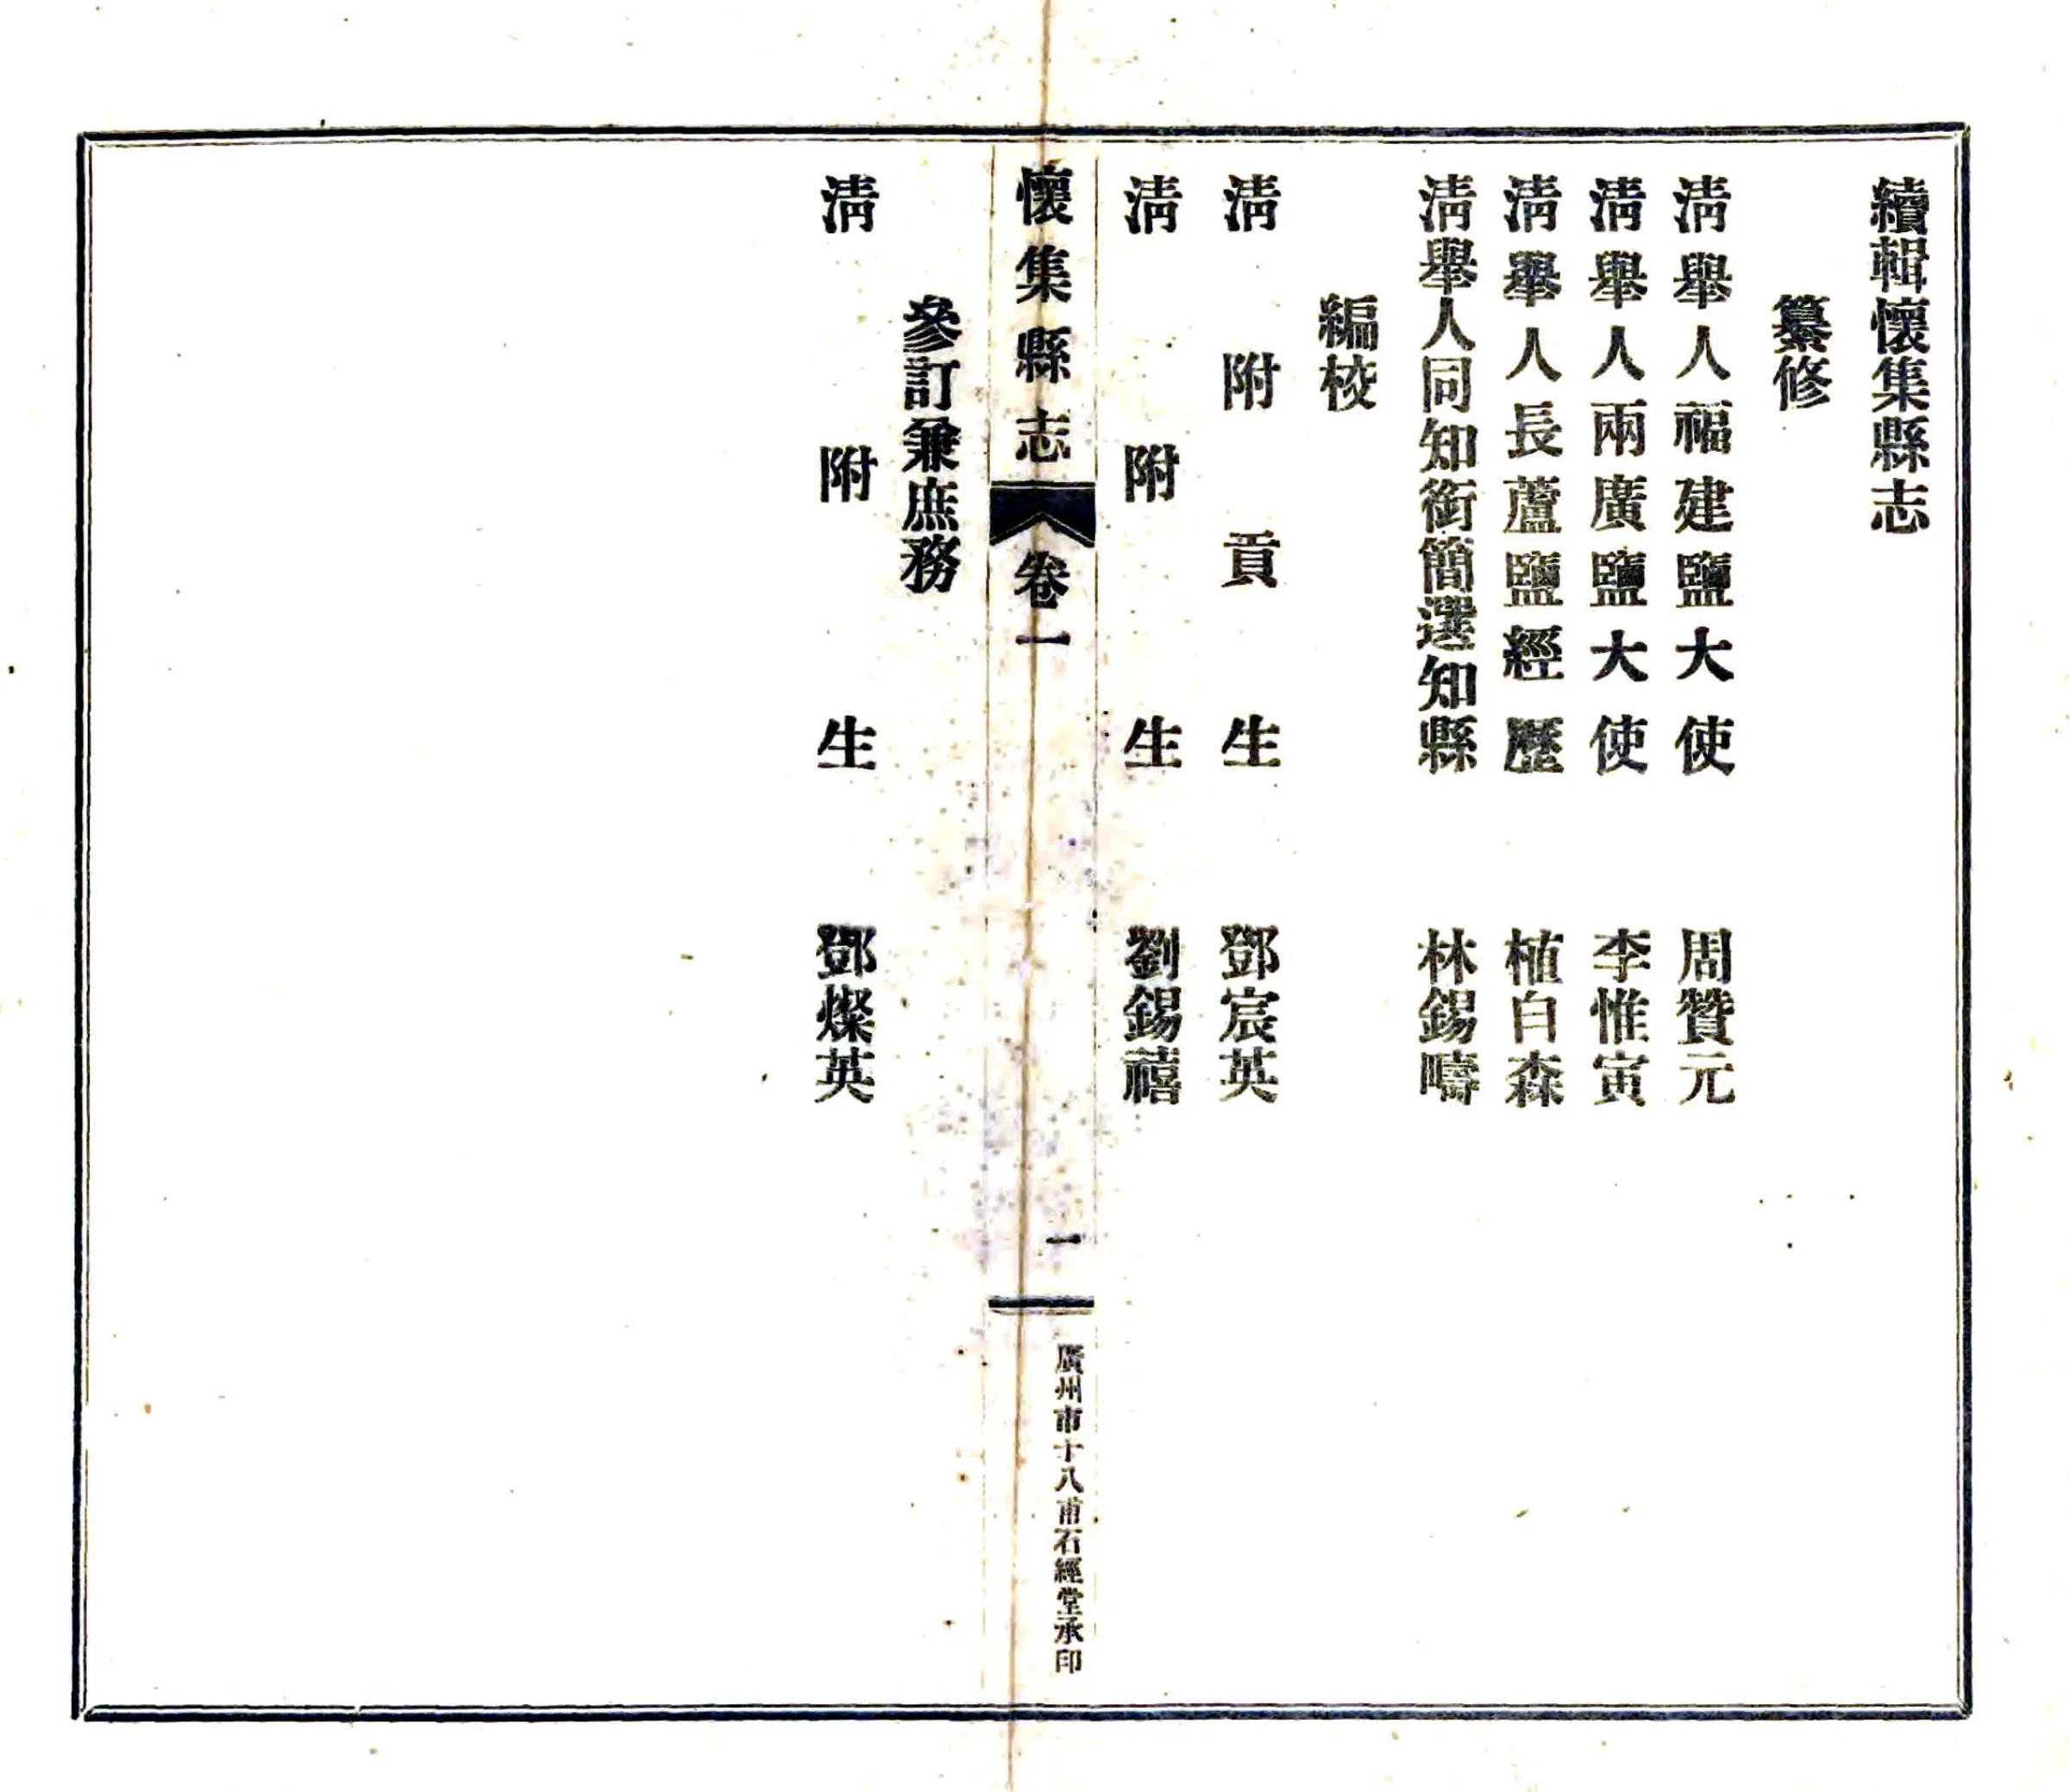 續輯懷集縣志
纂修
淸舉人福建鹽大使 周贊元
淸舉人兩廣鹽大使 李惟寅
淸舉人長蘆鹽經歷 植白森
淸舉人同知銜簡選知縣 林錫疇
編校
淸附貢生 鄧宸英
淸附生 劉錫禧
懷集縣志 卷一 一 廣州市十八甫石經堂承印
參訂兼庶務
淸附生 鄧燦英